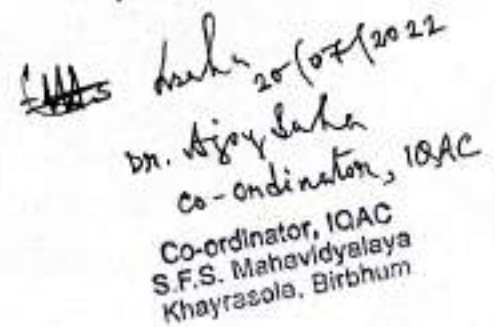 Asaha 20/07/2022
Dr. Ajoy Saha
Co-ordinator, IQAC
Co-ordinator, IQAC
S.F.S. Mahavidyalaya
Khayrasole, Birbhum